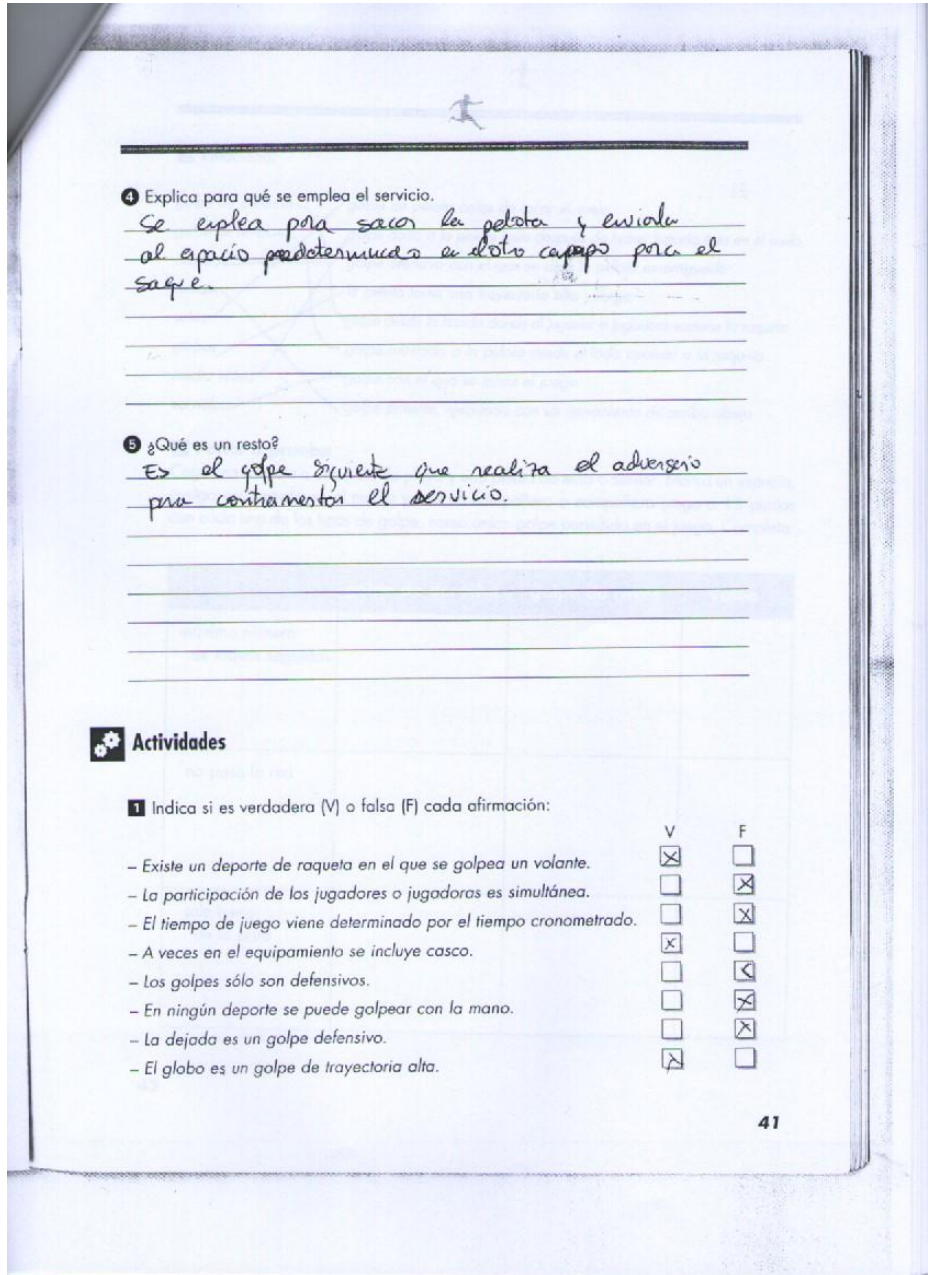 4 Explica para qué se emplea el servicio.
Se explea para sacar la pelota y enviarla
al espacio predeterminado en el otro campo para el
saque.
5 ¿Qué es un resto?
Es el golpe siguiente que realiza el adversario
para contrarrestar el servicio.
Actividades
1 Indica si es verdadera (V) o falsa (F) cada afirmación:
V F
– Existe un deporte de raqueta en el que se golpea un volante.
– La participación de los jugadores o jugadoras es simultánea.
– El tiempo de juego viene determinado por el tiempo cronometrado.
– A veces en el equipamiento se incluye casco.
– Los golpes sólo son defensivos.
– En ningún deporte se puede golpear con la mano.
– La dejada es un golpe defensivo.
– El globo es un golpe de trayectoria alta.
41